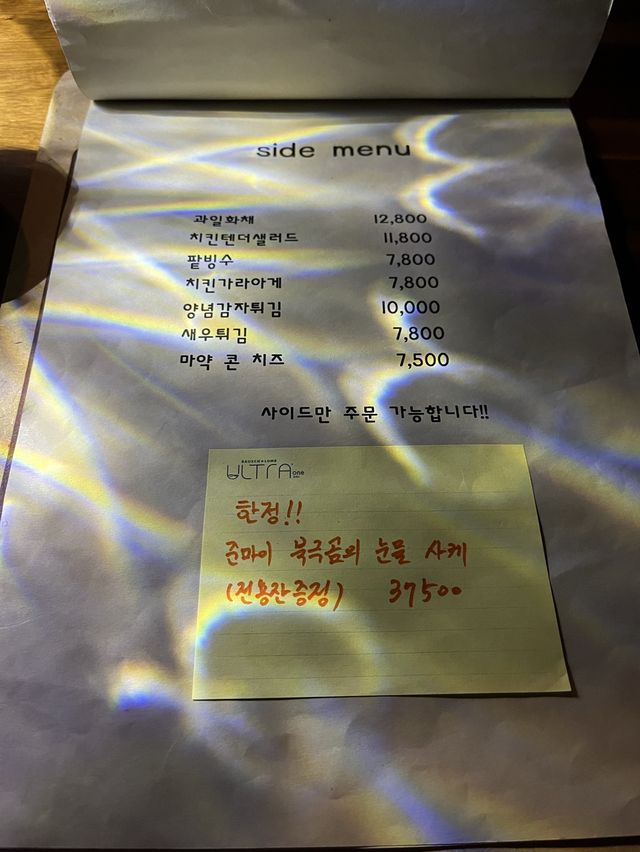 side menu
과일화채 12,800
치킨텐더샐러드 11,800
팥빙수 7,800
치킨가라아게 7,800
양념감자튀김 10,000
새우튀김 7,800
마약 콘 치즈 7,500
사이드만 주문 가능합니다!!
BAUSCH + LOMB
ULTRA one
한정!!
준마이 북극곰의 눈물 사케
(전용잔증정) 37500